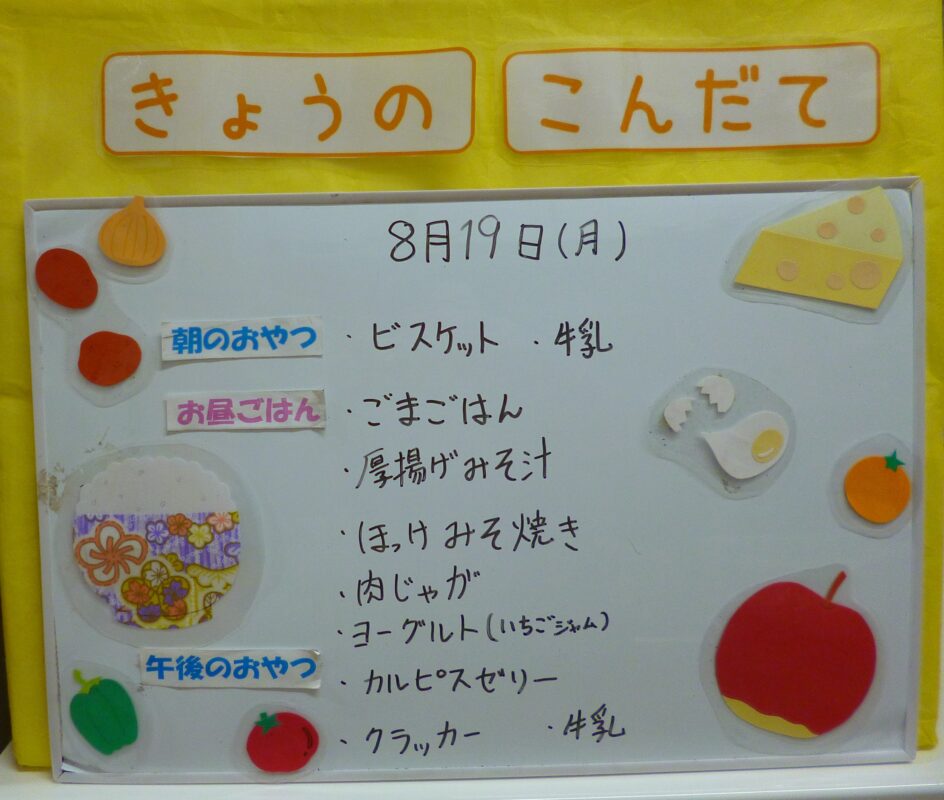 きょうの こんだて
8月19日(月)
朝のおやつ ・ビスケット ・牛乳
お昼ごはん ・ごまごはん
・厚揚げみそ汁
・ほっけみそ焼き
・肉じゃが
・ヨーグルト(いちごジャム)
午後のおやつ ・カルピスゼリー
・クラッカー ・牛乳